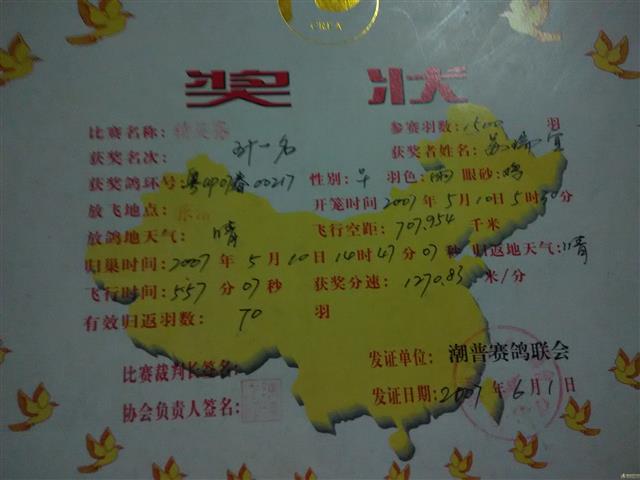 CREA
奖 状
比赛名称: 精英赛 参赛羽数: 1500 羽
获奖名次 获奖者姓名:
获奖鸽环号: 性别: 羽色: 雨 眼砂: 鸡
放飞地点: 开笼时间 2007年 5月 10日 5时30分
放鸽地天气: 晴 飞行空距: 707.954 千米
归巢时间: 2007年 5月 10日 14时 47分 07秒 归返地天气: 晴
飞行时间: 557 分 07 秒 获奖分速: 1270.83 米/分
有效归返羽数: 70 羽
比赛裁判长签名: 发证单位: 潮普赛鸽联会
协会负责人签名: 发证日期: 2007年 6月 1日